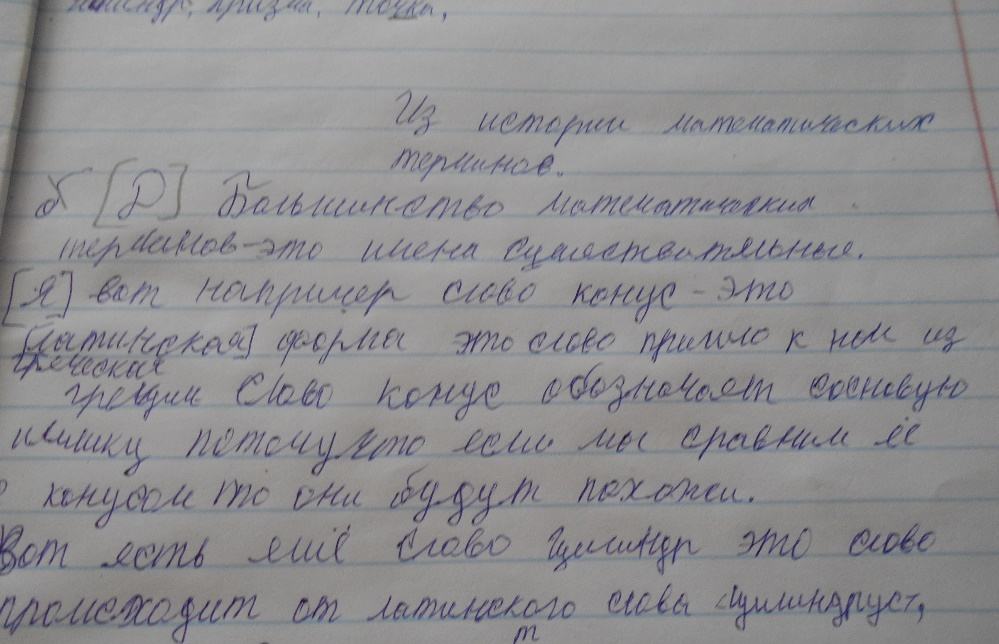 цилиндр, призма, точка,
Из истории математических
терминов.
б [Д] Большинство математических
терминов-это имена существительные.
[Я] вот например слово конус - это
[латинская] форма это слово пришло к нам из
греческая
греции Слово конус обозначает сосновую
шишку потому что если мы сравним её
конусом то они будут похожи.
Вот есть ещё слово цилиндр это слово
происходит от латинского слова цилиндруст,
т